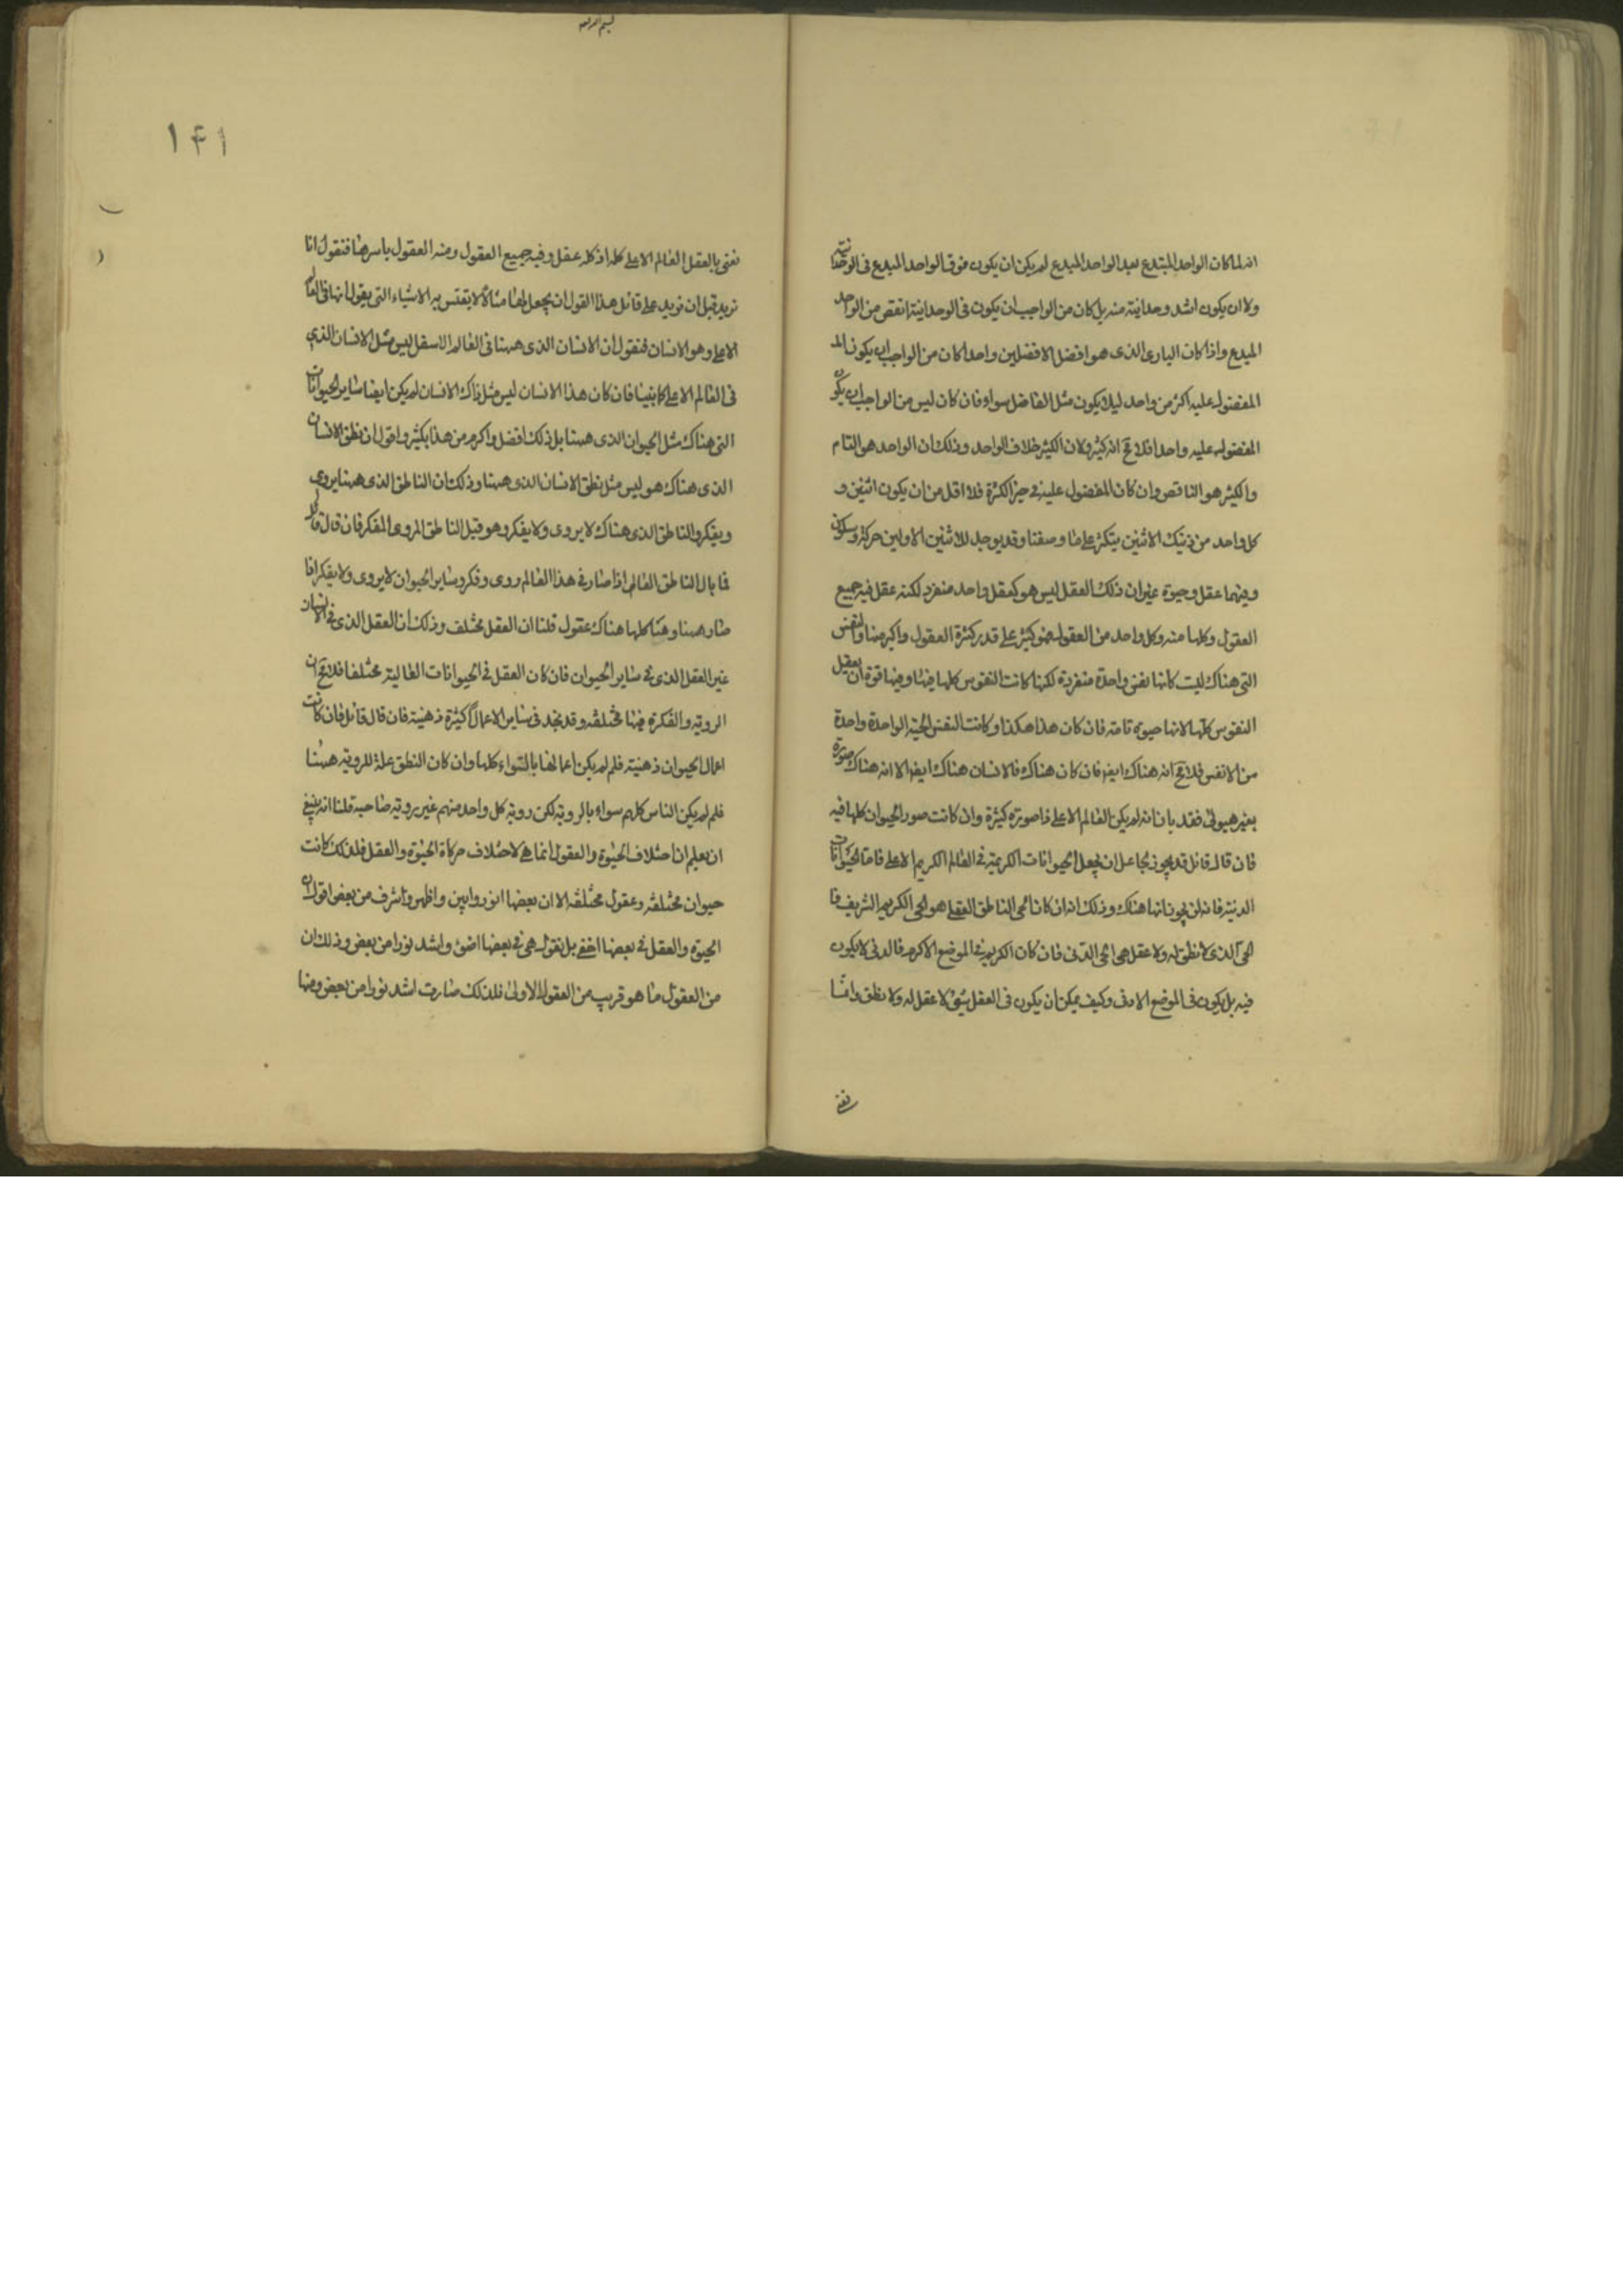 انه لما كان الواحد المبتدع بعد الواحد المبدع لم يكن ان يكون فوق الواحد المبدع فى الوحدانية
ولا ان يكون اشد وحدانية منه بل كان من الواجب ان يكون فى الوحدانية انقص من الواحد
المبدع واذا كان البارى الذى هو افضل الافضلين واحدا كان من الواجب ان يكون الم
المفضول عليه اكثر من واحد ليلا يكون مثل الفاضل سواء فان كان ليس من الواجب ان يكون
المفضول عليه واحدا فلا مح انه كثير ولان الكثير خلاف الواحد وذلك ان الواحد هو التام
والكثير هو الناقص وان كان المفضول عليه فى حيز الكثرة فلا اقل من ان يكون اثنين و
كل واحد من ذينك الاثنين يتكثر على ما وصفنا وقد يوجد للاثنين الاولين حركة وسكون
وفيهما عقل وحيوة غير ان ذلك العقل ليس هو كعقل واحد منفرد لكنه عقل فيه جميع
العقول وكلها منه وكل واحد من العقول فهو كثير على قدر كثرة العقول واكثر منها والنفس
التى هناك ليست كانها نفس واحدة منفردة لكنها كانت النفوس كلها فيها وفيها قوة ان يعقل
النفوس كلها لانها حيوة تامة فان كان هذا هكذا وكانت النفس الحية الواحدة واحدة
من الانفس فلا مح انه هناك ايضا فان كان هناك فالانسان هناك ايضا الا انه هناك صورة
بغير هيولى فقد بان انه لم يكن العالم الاعلى ذا صورة كثيرة وان كانت صور الحيوان كلها فيه
فان قال قائل قد يجوز لجاعل ان يجعل الحيوانات الكريمة فى العالم الكريم الاعلى فاما الحيوانات
الدنية فانه لن يجوز انها هناك وذلك انه ان كان الحى الناطق العقلى هو الحى الكريم الشريف فا
لحى الذى لا نطق له ولا عقل هو الحى الدنى فان كان الكريم فى الموضع الاكرم فالدنى لا يكون
فيه بل يكون فى الموضع الادنى وكيف يمكن ان يكون فى العقل شئ لا عقل له ولا نطق وانما
نعنى
١٤١
نعنى بالعقل العالم الاعلى كله اذ كله عقل وفيه جميع العقول ومنه العقول باسرها فنقول انا
نريد قبل ان نرد على قائل هذا القول ان نجعل لها مثالا نقيس به الاشياء التى نقول انها فى العالم
الاعلى وهو الانسان فنقول ان الانسان الذى ههنا فى العالم الاسفل ليس مثل الانسان الذى
فى العالم الاعلى كما بينا فان كان هذا الانسان ليس مثل ذاك الانسان لم يكن ايضا ساير الحيوانات
التى هناك مثل الحيوان الذى ههنا بل ذلك افضل واكرم من هذا بكثير واقول ان نطق الانسان
الذى هناك هو ليس مثل نطق الانسان الذى ههنا وذلك ان الناطق الذى ههنا يروى
ويفكر والناطق الذى هناك لا يروى ولا يفكر وهو قبل الناطق المروى المفكر فان قال قائل
فما بال الناطق العالى اذا صار فى هذا العالم روى وفكر وساير الحيوان لا يروى ولا يفكر اذا
صار ههنا وهى كلها هناك عقول قلنا ان العقل مختلف وذلك ان العقل الذى فى الانسان
غير العقل الذى فى ساير الحيوان فان كان العقل فى الحيوانات العالية مختلفا فلا مح ان
الروية والفكرة فيها مختلفة وقد نجد فى ساير الاعمال كثيرة ذهنية فان قال قائل فان كانت
اعمال الحيوان ذهنية فلم لم يكن اعمالها بالسواء كلها وان كان النطق علة للروية ههنا
فلم لم يكن الناس كلهم سواء بالروية لكن روية كل واحد منهم غير روية صاحبه قلنا انه ينبغى
ان يعلم ان اختلاف الحيوة والعقول انما هى لاختلاف حركات الحيوة والعقل فلذلك كانت
حيوان مختلفة وعقول مختلفة الا ان بعضها انور وابين واظهر واشرف من بعض اقول ان
الحيوة والعقل فى بعضها اخفى بل نقول هى فى بعضها اضوئ واشد نورا من بعض وذلك ان
من العقول ما هو قريب من العقول الاولى فلذلك صارت اشد نورا من بعض ومنها